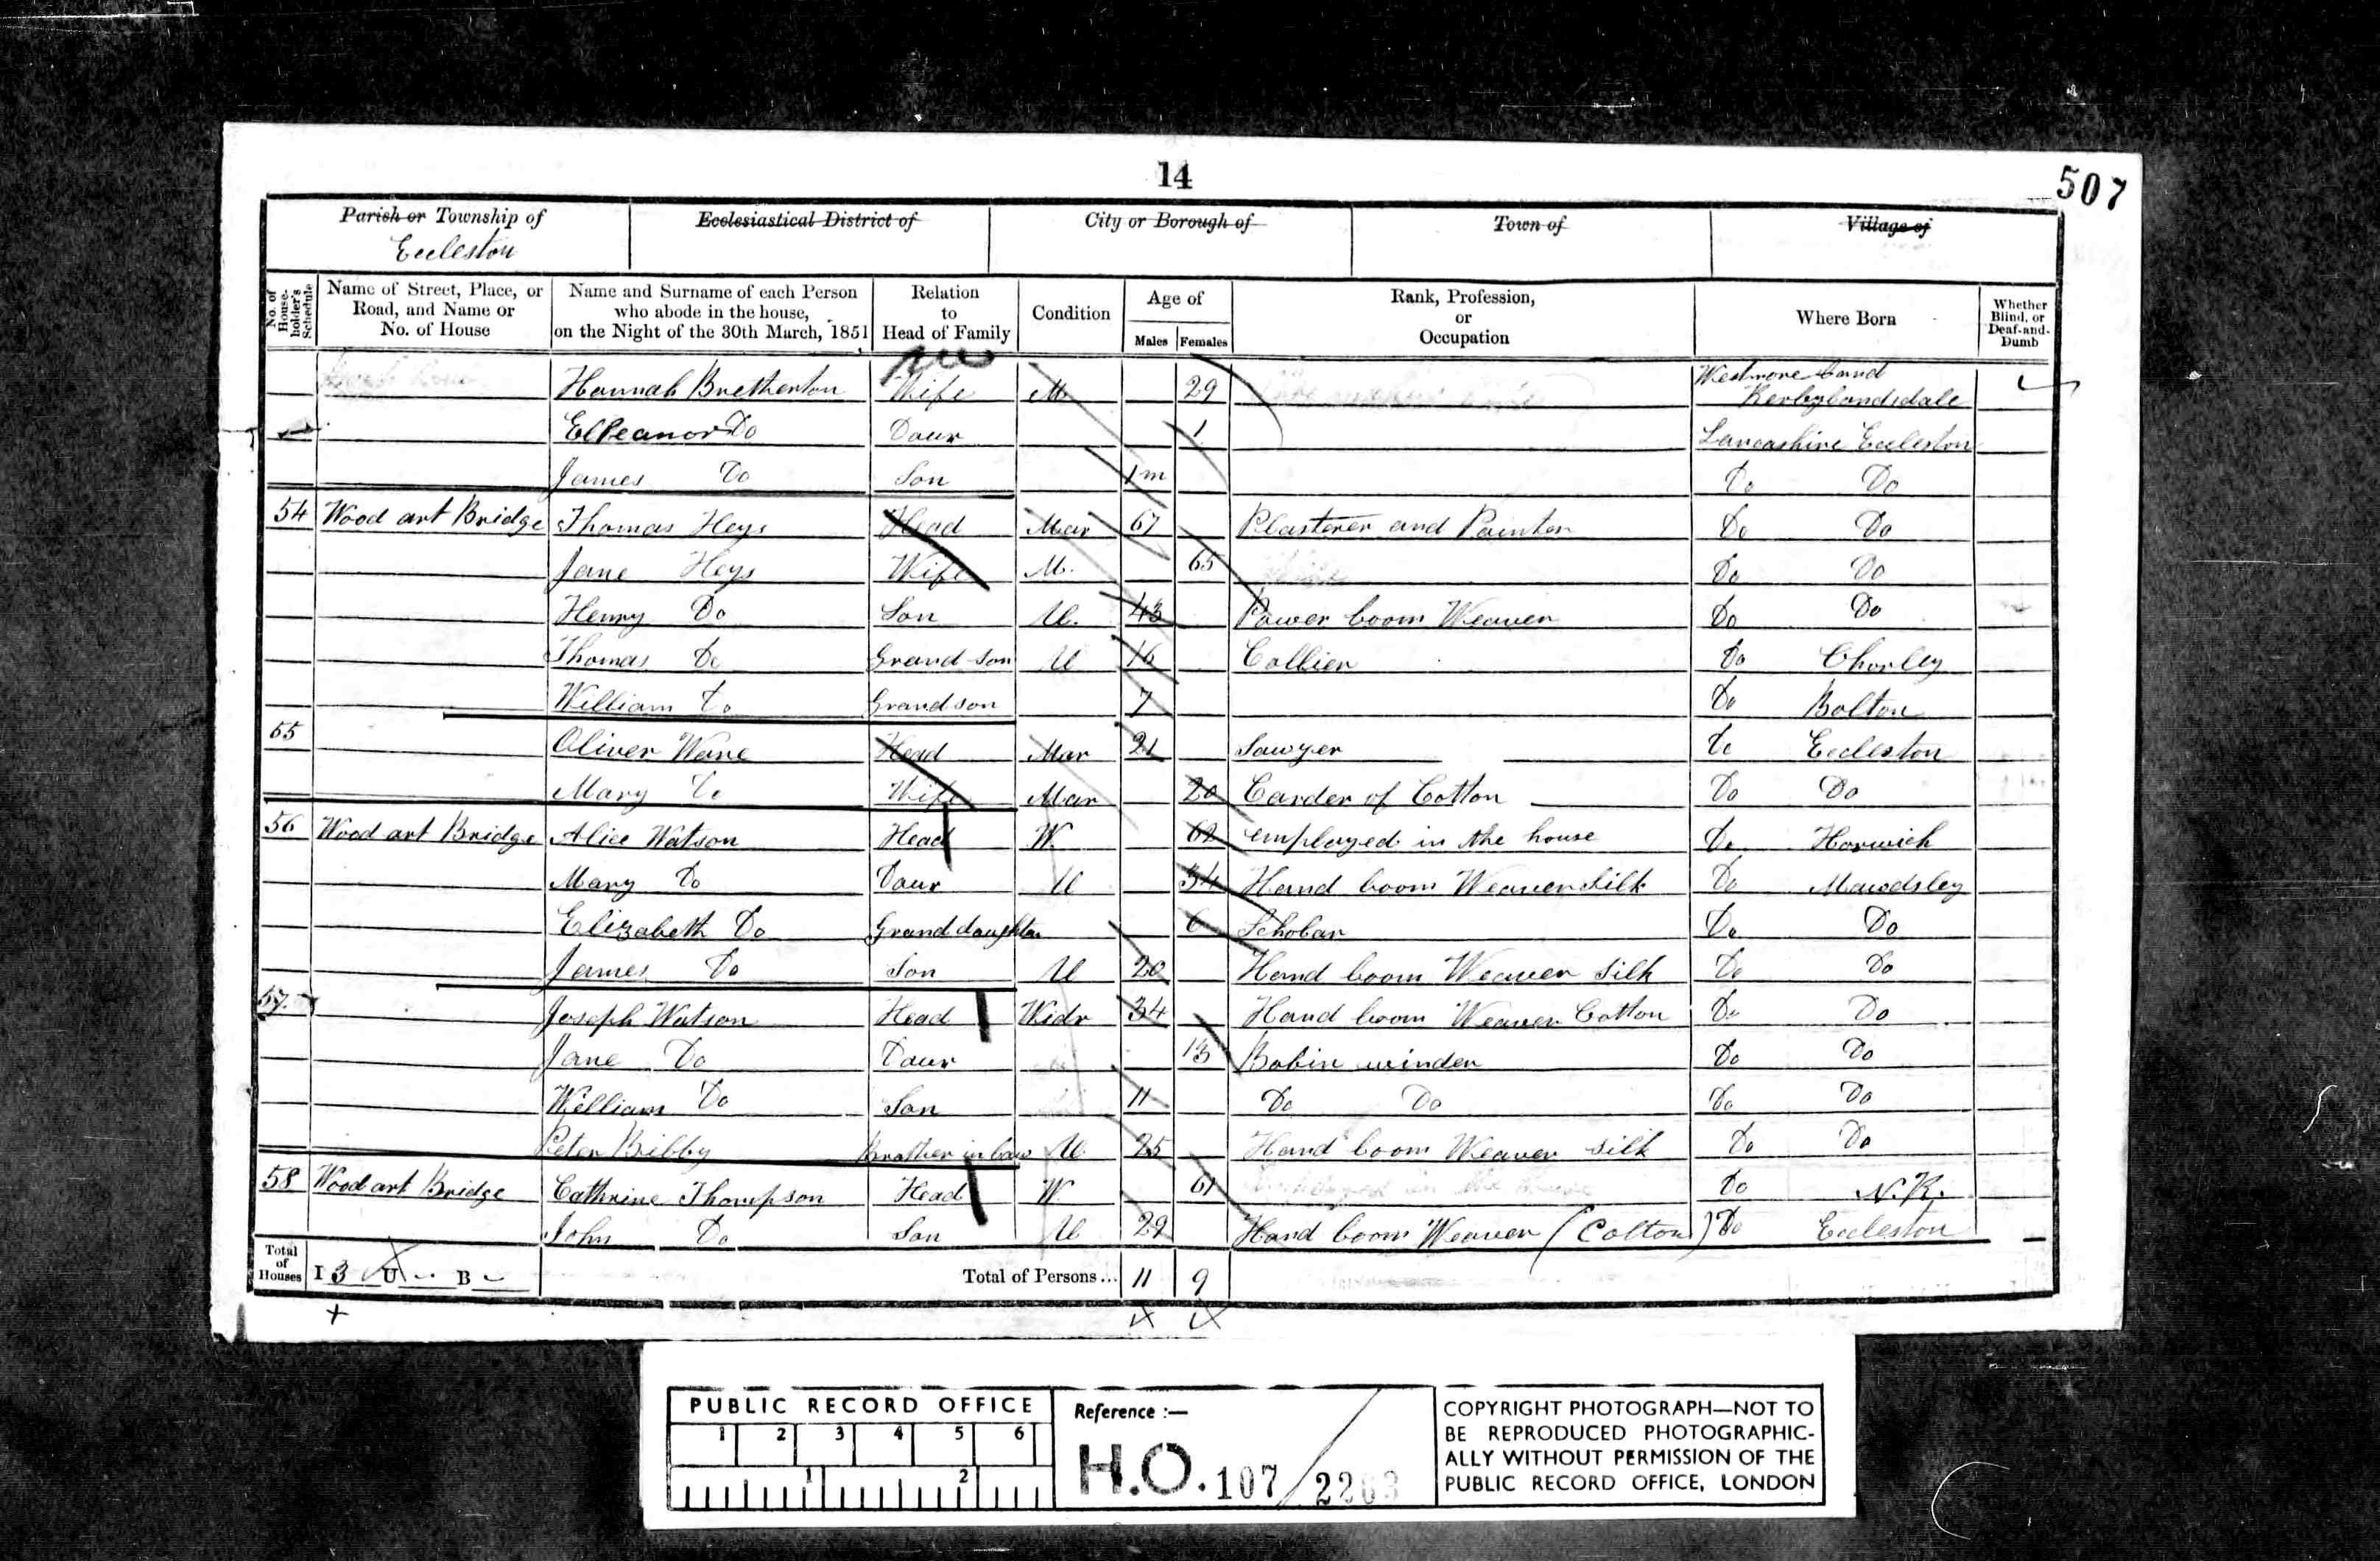 14
507
Parish or Township of
Eccleston
Ecclesiastical District of
City or Borough of
Town of
Village of
No. of House-holder's Schedule
Name of Street, Place, or Road, and Name or No. of House
Name and Surname of each Person who abode in the house, on the Night of the 30th March, 1851
Relation to Head of Family
Condition
Age of
Males Females
Rank, Profession, or Occupation
Where Born
Whether Blind, or Deaf-and-Dumb
Hannah Bretherton Wife M 29 Westmoreland Kerbylondsdale
Elleanor Do Daur 1 Lancashire Eccleston
James Do Son 1m Do Do
54 Wood art Bridge Thomas Heys Head Mar 67 Plasterer and Painter Do Do
Jane Heys Wife M. 65 Do Do
Henry Do Son U. 43 Power loom Weaver Do Do
Thomas Do Grand son U 16 Collier Do Chorley
William Do Grand son 7 Do Bolton
55 Oliver Wane Head Mar 21 Sawyer Do Eccleston
Mary Do Wife Mar 20 Carder of Cotton Do Do
56 Wood art Bridge Alice Watson Head W. 62 employed in the house Do Horwich
Mary Do Daur U 34 Hand loom Weaver Silk Do Mawdsley
Elizabeth Do Grand daughter 6 Scholar Do Do
James Do Son U 20 Hand loom Weaver silk Do Do
57. Joseph Watson Head Widr 34 Hand loom Weaver Cotton Do Do
Jane Do Daur 13 Bobin winder Do Do
William Do Son 11 Do Do Do Do
Peter Bibby Brother in law U 25 Hand loom Weaver silk Do Do
58 Wood art Bridge Cathrine Thompson Head W 61 employed in the house Do N.K.
John Do Son U 29 Hand loom Weaver (Cotton) Do Eccleston
Total of Houses I 3 U B
Total of Persons... 11 9
PUBLIC RECORD OFFICE
1 2 3 4 5 6
1 2
Reference :—
H.O. 107/2263
COPYRIGHT PHOTOGRAPH—NOT TO
BE REPRODUCED PHOTOGRAPHIC-
ALLY WITHOUT PERMISSION OF THE
PUBLIC RECORD OFFICE, LONDON